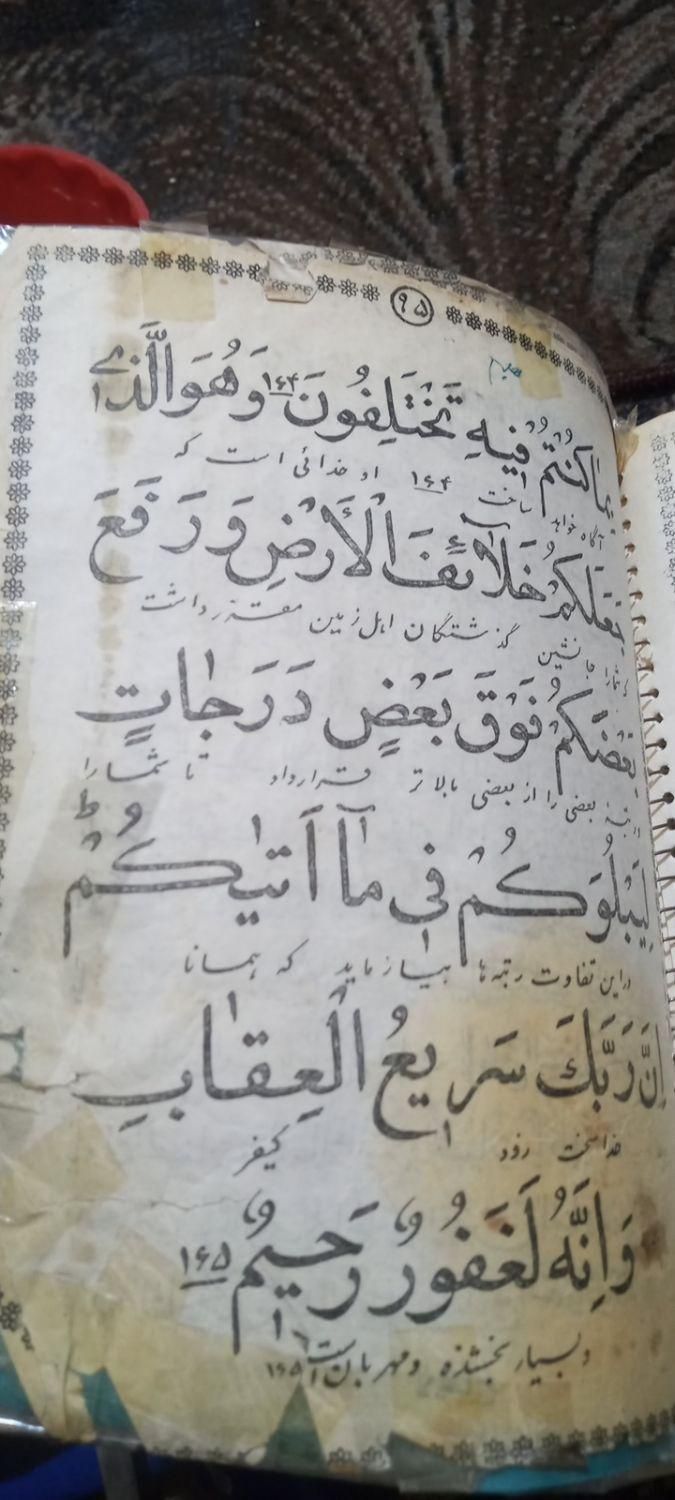 ۹۵
بِمٰا كُنْتُمْ فٖيهِ تَخْتَلِفُونَ ۱۶۴ وَهُوَ الَّذٖي
آگاه خواهد ساخت ۱۶۴ او خدائی است که
جَعَلَكُمْ خَلٰٓائِفَ الْأَرْضِ وَرَفَعَ
شما را جانشین گذشتگان اهل زمین مقرر داشت
بَعْضَكُمْ فَوْقَ بَعْضٍ دَرَجٰاتٍ
رتبه بعضی را از بعضی بالاتر قرار داد تا شما را
لِيَبْلُوَكُمْ فٖي مٰٓا اَتٰيكُمْ ط
در این تفاوت رتبه‌ها بیازماید که همانا
اِنَّ رَبَّكَ سَرٖيعُ الْعِقٰابِ
خدا سخت زود کیفر
وَاِنَّهُ لَغَفُورٌ رَحٖيمٌ ۱۶۵
و بسیار بخشنده و مهربان است ۱۶۵